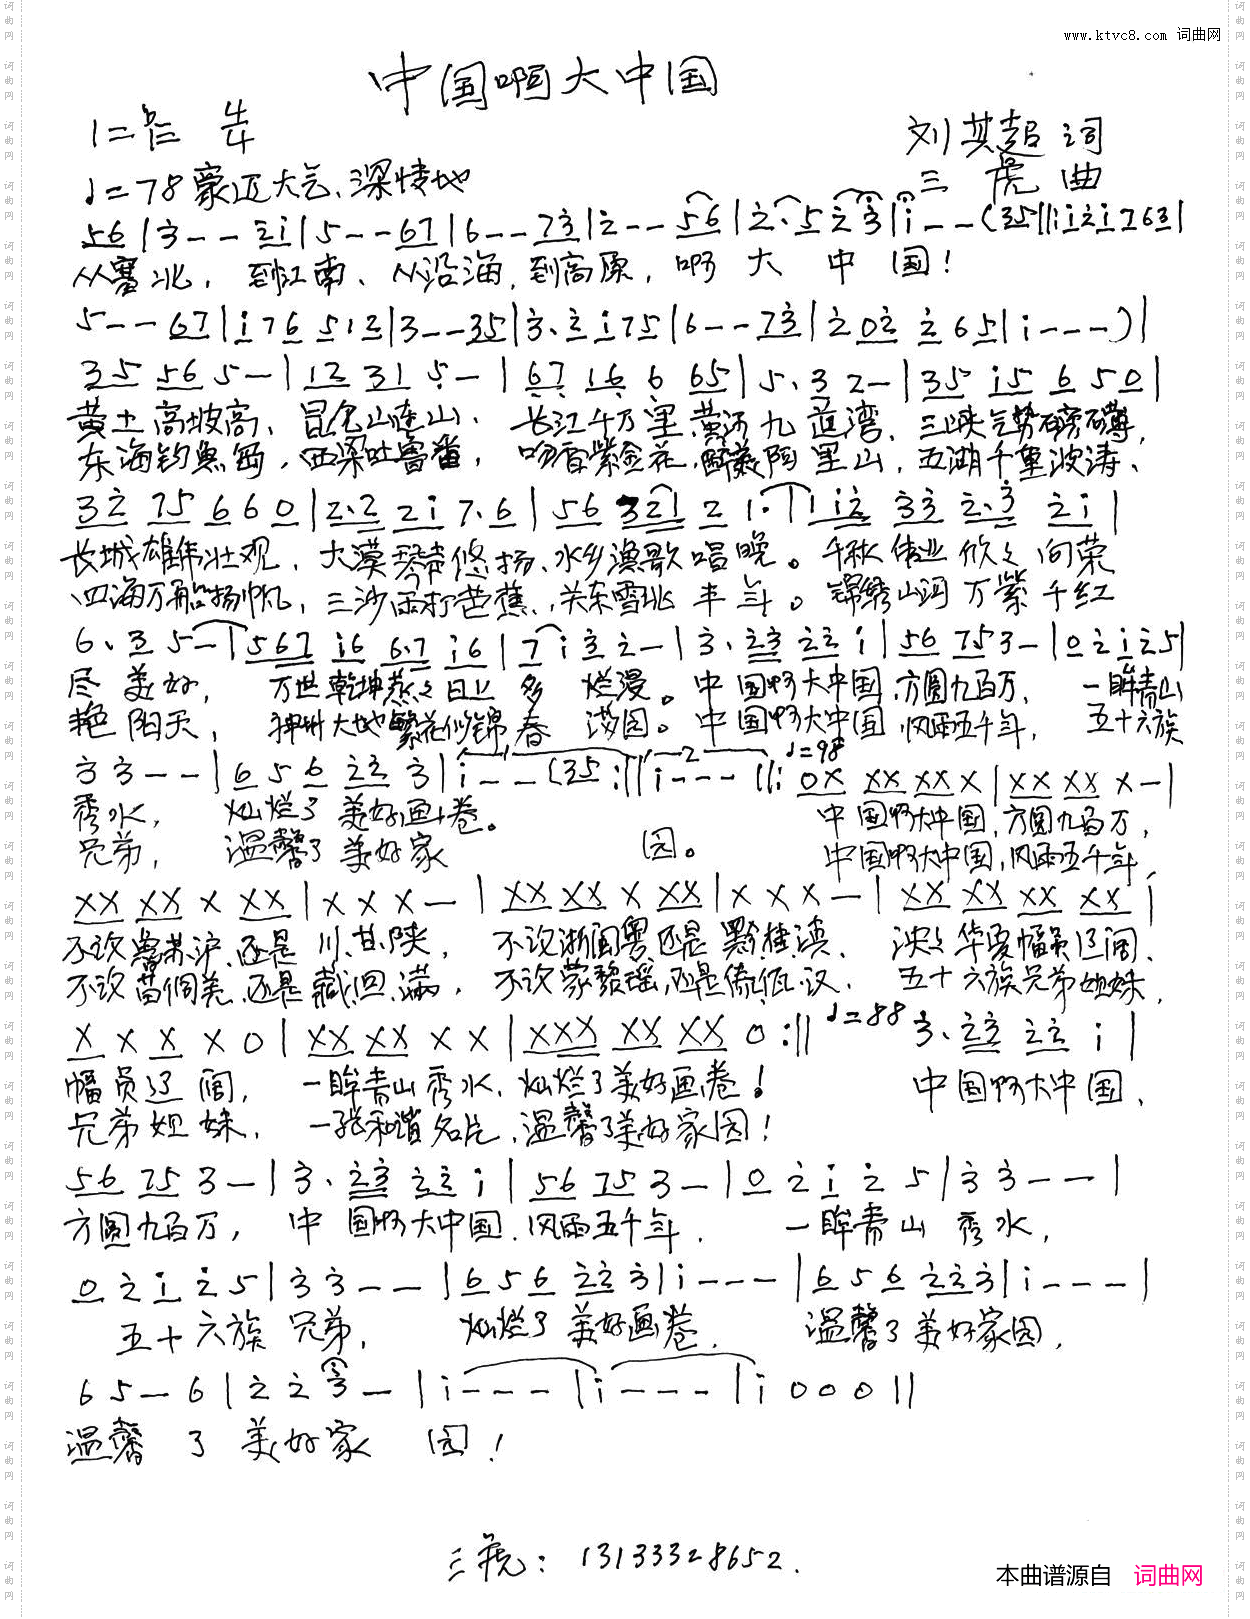 www.ktvc8.com 词曲网
中国啊大中国
1=♭E 4/4
刘其超 词
♩=78 豪迈大气、深情地
三虎 曲
56|3--2i|5--67|6--73|2--56|2·523|i--(35|i2i763|
从塞北,到江南、从沿海,到高原,啊 大 中 国!
5--67|i76 512|3--35|3·2 i75|6--73|2 02 2 65|i---)|
35 56 5-|12 31 5-|67 16 6 65|5·3 2-|35 i5 6 5 0|
黄土高坡高、昆仑山连山、长江千万里,黄河九道湾,三峡气势磅礴,
东海钓鱼岛,西梁吐鲁番,吻香紫金花,醉美阿里山,五湖千重波涛、
32 75 6 6 0|2·2 2i 7·6|56 321 2 1·|1 i2 33 2·3 2i|
长城雄伟壮观,大漠琴声悠扬、水乡渔歌唱晚。千秋伟业欣欣向荣
四海万船扬帆,三沙雨打芭蕉,关东雪兆丰年。锦绣山河万紫千红
6·3 5-|567 i6 6·7 i6|7 i 3 2-|3·23 22 i|56 753-|0 2 i 2 5|
尽美好,万世乾坤蒸蒸日上多烂漫。中国啊大中国,方圆九百万,一眸青山
艳阳天,神州大地繁花似锦春满园。中国啊大中国,风雨五千年,五十六族
33--|6 5 6 22 3|i--(35:||i---||: ♩=98 0X XX XX X|XX XX X-|
秀水,灿烂了美好画卷。中国啊大中国,方圆九百万,
兄弟,温馨了美好家园。中国啊大中国,风雨五千年,
XX XX X XX|X X X-|XX XX X XX|X X X-|XX XX XX XX|
不说鲁苏沪,还是川、甘、陕,不说浙闽粤还是黔桂滇、泱泱华夏幅员辽阔、
不说苗侗羌,还是藏、回、满,不说蒙黎瑶,还是傣、佤、汉、五十六族兄弟姐妹,
X X X X 0|XX XX X X|XXX XX XX 0:|| ♩=88 3·23 22 i|
幅员辽阔,一眸青山秀水,灿烂了美好画卷!中国啊大中国,
兄弟姐妹,一张和谐名片,温馨了美好家园!
56 75 3-|3·23 22 i|56 75 3-|0 2 i 2 5|3 3--|
方圆九百万,中国啊大中国,风雨五千年,一眸青山秀水,
0 2 i 2 5|3 3--|6 5 6 22 3|i---|6 5 6 22 3|i---|
五十六族兄弟,灿烂了美好画卷,温馨了美好家园,
6 5-6|2 2 3-|i---|i---|i 0 0 0||
温馨了美好家园!
三虎:13133328652.
本曲谱源自 词曲网